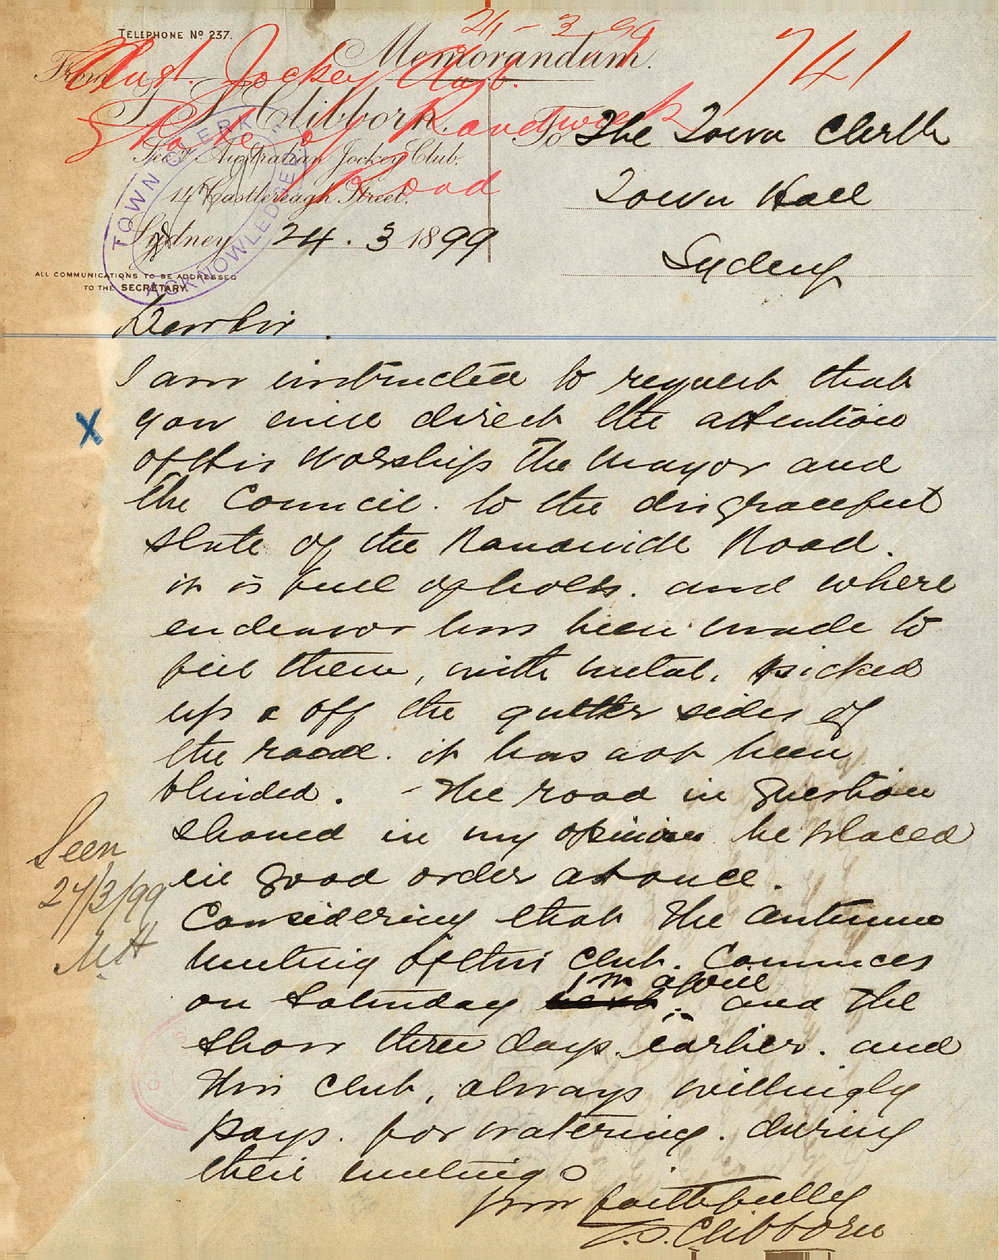 TELEPHONE Nº 237.
24-3-99
741
Memorandum.
From
Aust. Jockey Club.
T. S. Clibborn.
State of Randwick
Road
Sec. Australian Jockey Club.
14 Castlereagh Street.
Sydney 24. 3 1899
TOWN CLERK
ACKNOWLEDGED
ALL COMMUNICATIONS TO BE ADDRESSED
TO THE SECRETARY.
To The Town Clerk
Town Hall
Sydney
Dear Sir.
I am instructed to request that
X
you will direct the attention
of His Worship the Mayor and
the Council. to the disgraceful
state of the Randwick Road.
it is full of holes. and where
endeavor has been made to
fill them, with metal. picked
up & off the gutter sides of
the road. it has not been
blinded. - The road in question
should in my opinion be placed
in good order at once.
Considering that the Autumn
Meeting of this club. Commences
on Saturday 1st April and the
Show three days earlier. and
this club, always willingly
pays. for watering. during
their meeting.
Your faithfully
T.S. Clibborn
Seen
27/3/99
MH